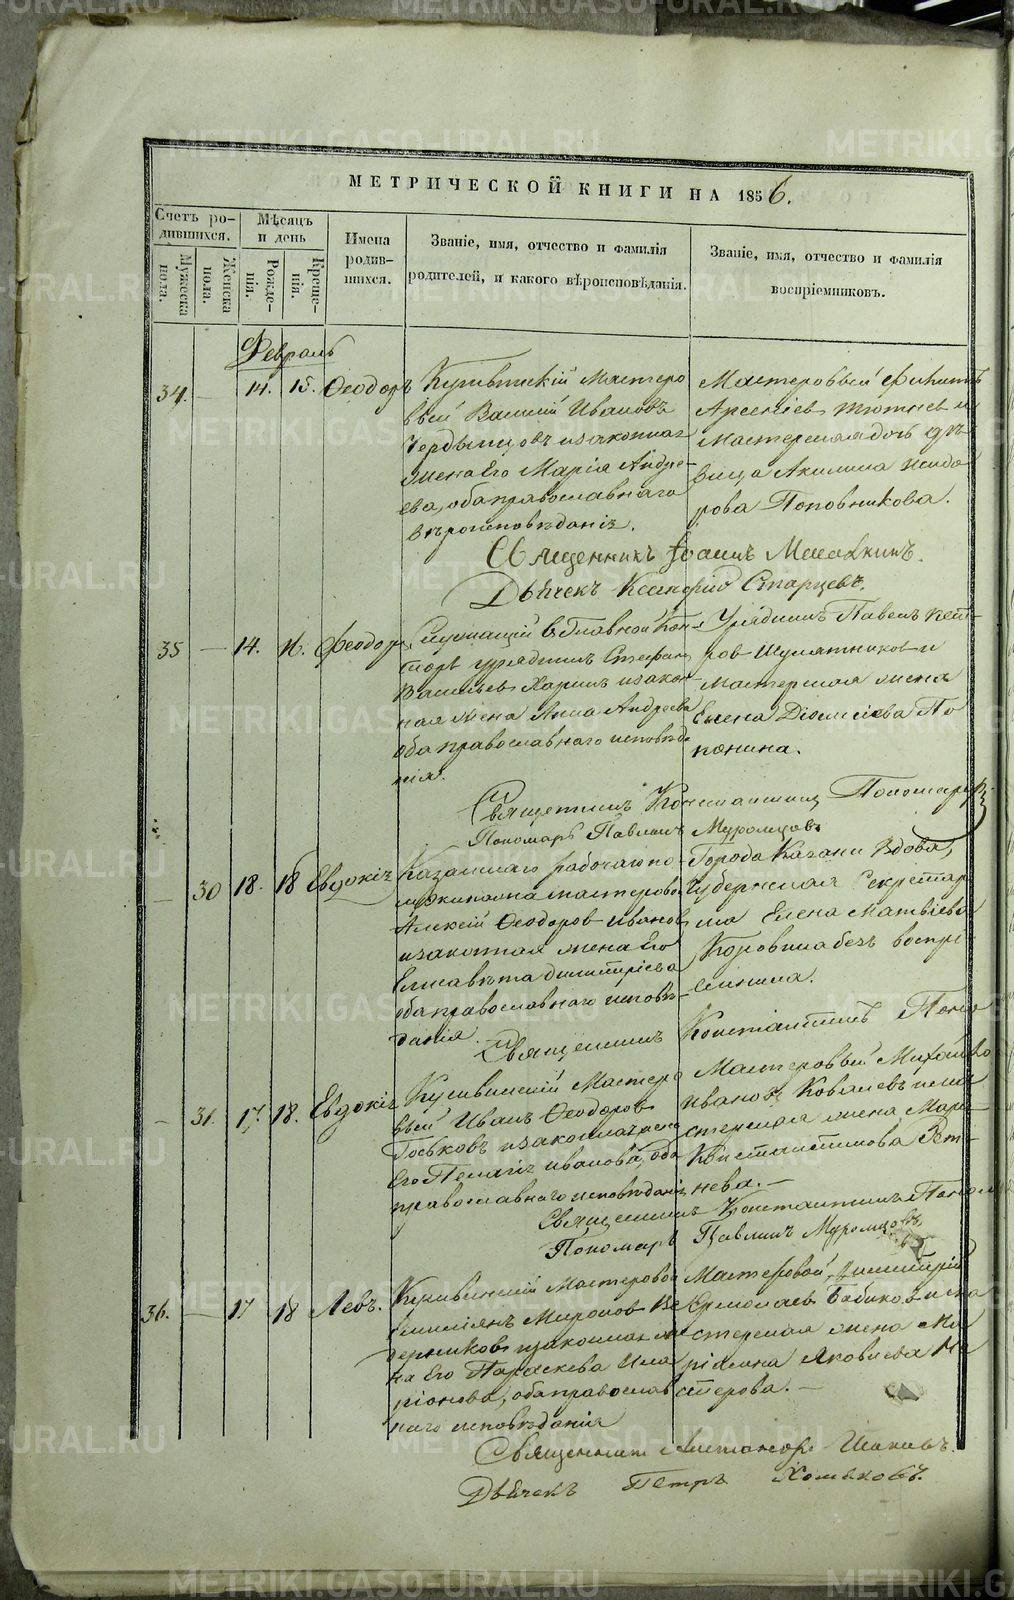 МЕТРИЧЕСКОЙ КНИГИ НА 1856.
Счетъ ро-
дившихся.
Мужеска
пола.
Женска
пола.
Мѣсяцъ
и день
Рожде-
нія.
Креще-
нія.
Имена
родив-
шихся.
Званіе, имя, отчество и фамилія
родителей, и какого вѣроисповѣданія.
Званіе, имя, отчество и фамилія
воспріемниковъ.
Февраль
34. — 14. 15. Ѳеодоръ
Кушвинскій Мастеро
вый Василій Ивановъ
изаконная
жена Его Марія Андре
ева, оба православнаго
вѣроисповѣданія.
Мастеровый
Арсеніев и
Мастерская дочь дѣ-
вица Акилина Исидо
рова Половникова.
Священникъ Іоаннъ
Дьячекъ Ксенофонтъ Старцевъ.
35 — 14. 16. Феодоръ
Служащій в Главной Кон
торѣ урядникъ Стефан
Васильев Харин изакон
ная жена Анна Андреева
оба православнаго исповѣда
нія.
Урядникъ Павелъ Пет-
ров Шулятников и
мастерская жена
Елена Діонисіева По
Священникъ Константинъ Пономарев
Пономарь Павлинъ Муромцовъ
— 30 18. 18 Евдокія
Казеннаго рабочаго
мастеров
Алексій Ѳеодоров Иванов
изаконная жена Его
Елисавета Димитріева
оба православнаго исповѣ-
данія.
Города Казани вдова,
Губернская Секретар
ша Елена Матвѣева
Коровина безъ воспрі
емника.
Священникъ Константинъ Поно
— 31. 17. 18. Евдокія
Кушвинскій Мастеро
вый Иванъ Ѳеодоров
Госьковъ изаконная жена
Его Пелагія Иванова, оба
православнаго исповѣданія
Мастеровый Михайло
Иванов Ковалевъ има
стерская жена Марѳа
Константинова Вет-
нева. —
Священникъ Константинъ Поном
Пономарь Павлинъ Муромцовъ
36. — 17 18 Левъ.
Кушвинскій Мастеровой
Емиліянъ Миронов Ве
дерников изаконная же
на Его Параскева Ила
ріонова, оба православ
наго исповѣданія
Мастеровой Димитрій
Ермолаев Бабиков има
стерская жена Ма
ріамна Яковлева Не
стерова. —
Священник Александр
Дьячекъ Петръ Хомяковъ.
METRIKI.GASO-URAL.RU